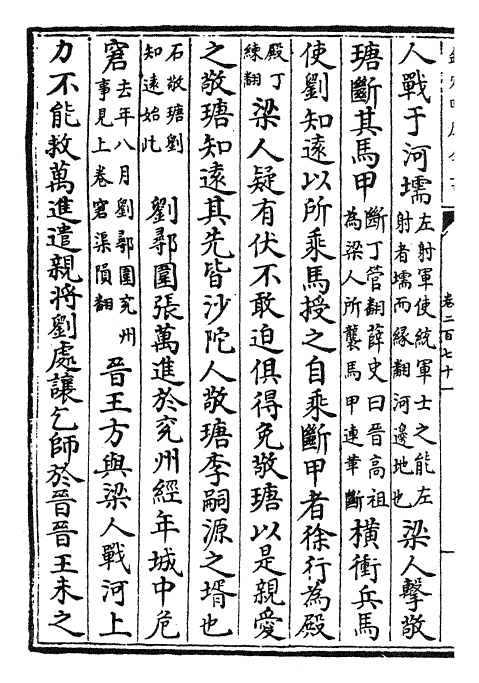 人戰于河壖左射軍使統軍士之能左射者壖而緣翻河邊地也梁人擊敬
瑭斷其馬甲斷丁管翻薛史曰晉高祖為梁人所襲馬甲連革斷橫衝兵馬
使劉知遠以所乘馬授之自乘斷甲者徐行為殿
殿丁練翻梁人疑有伏不敢迫俱得免敬瑭以是親愛
之敬瑭知遠其先皆沙陀人敬瑭李嗣源之壻也
石敬瑭劉知遠始此 劉鄩圍張萬進於兖州經年城中危
窘去年八月劉鄩圍兖州事見上卷窘渠隕翻晉王方與梁人戰河上
力不能救萬進遣親將劉處讓乞師於晉晉王未之
卷二百七十一